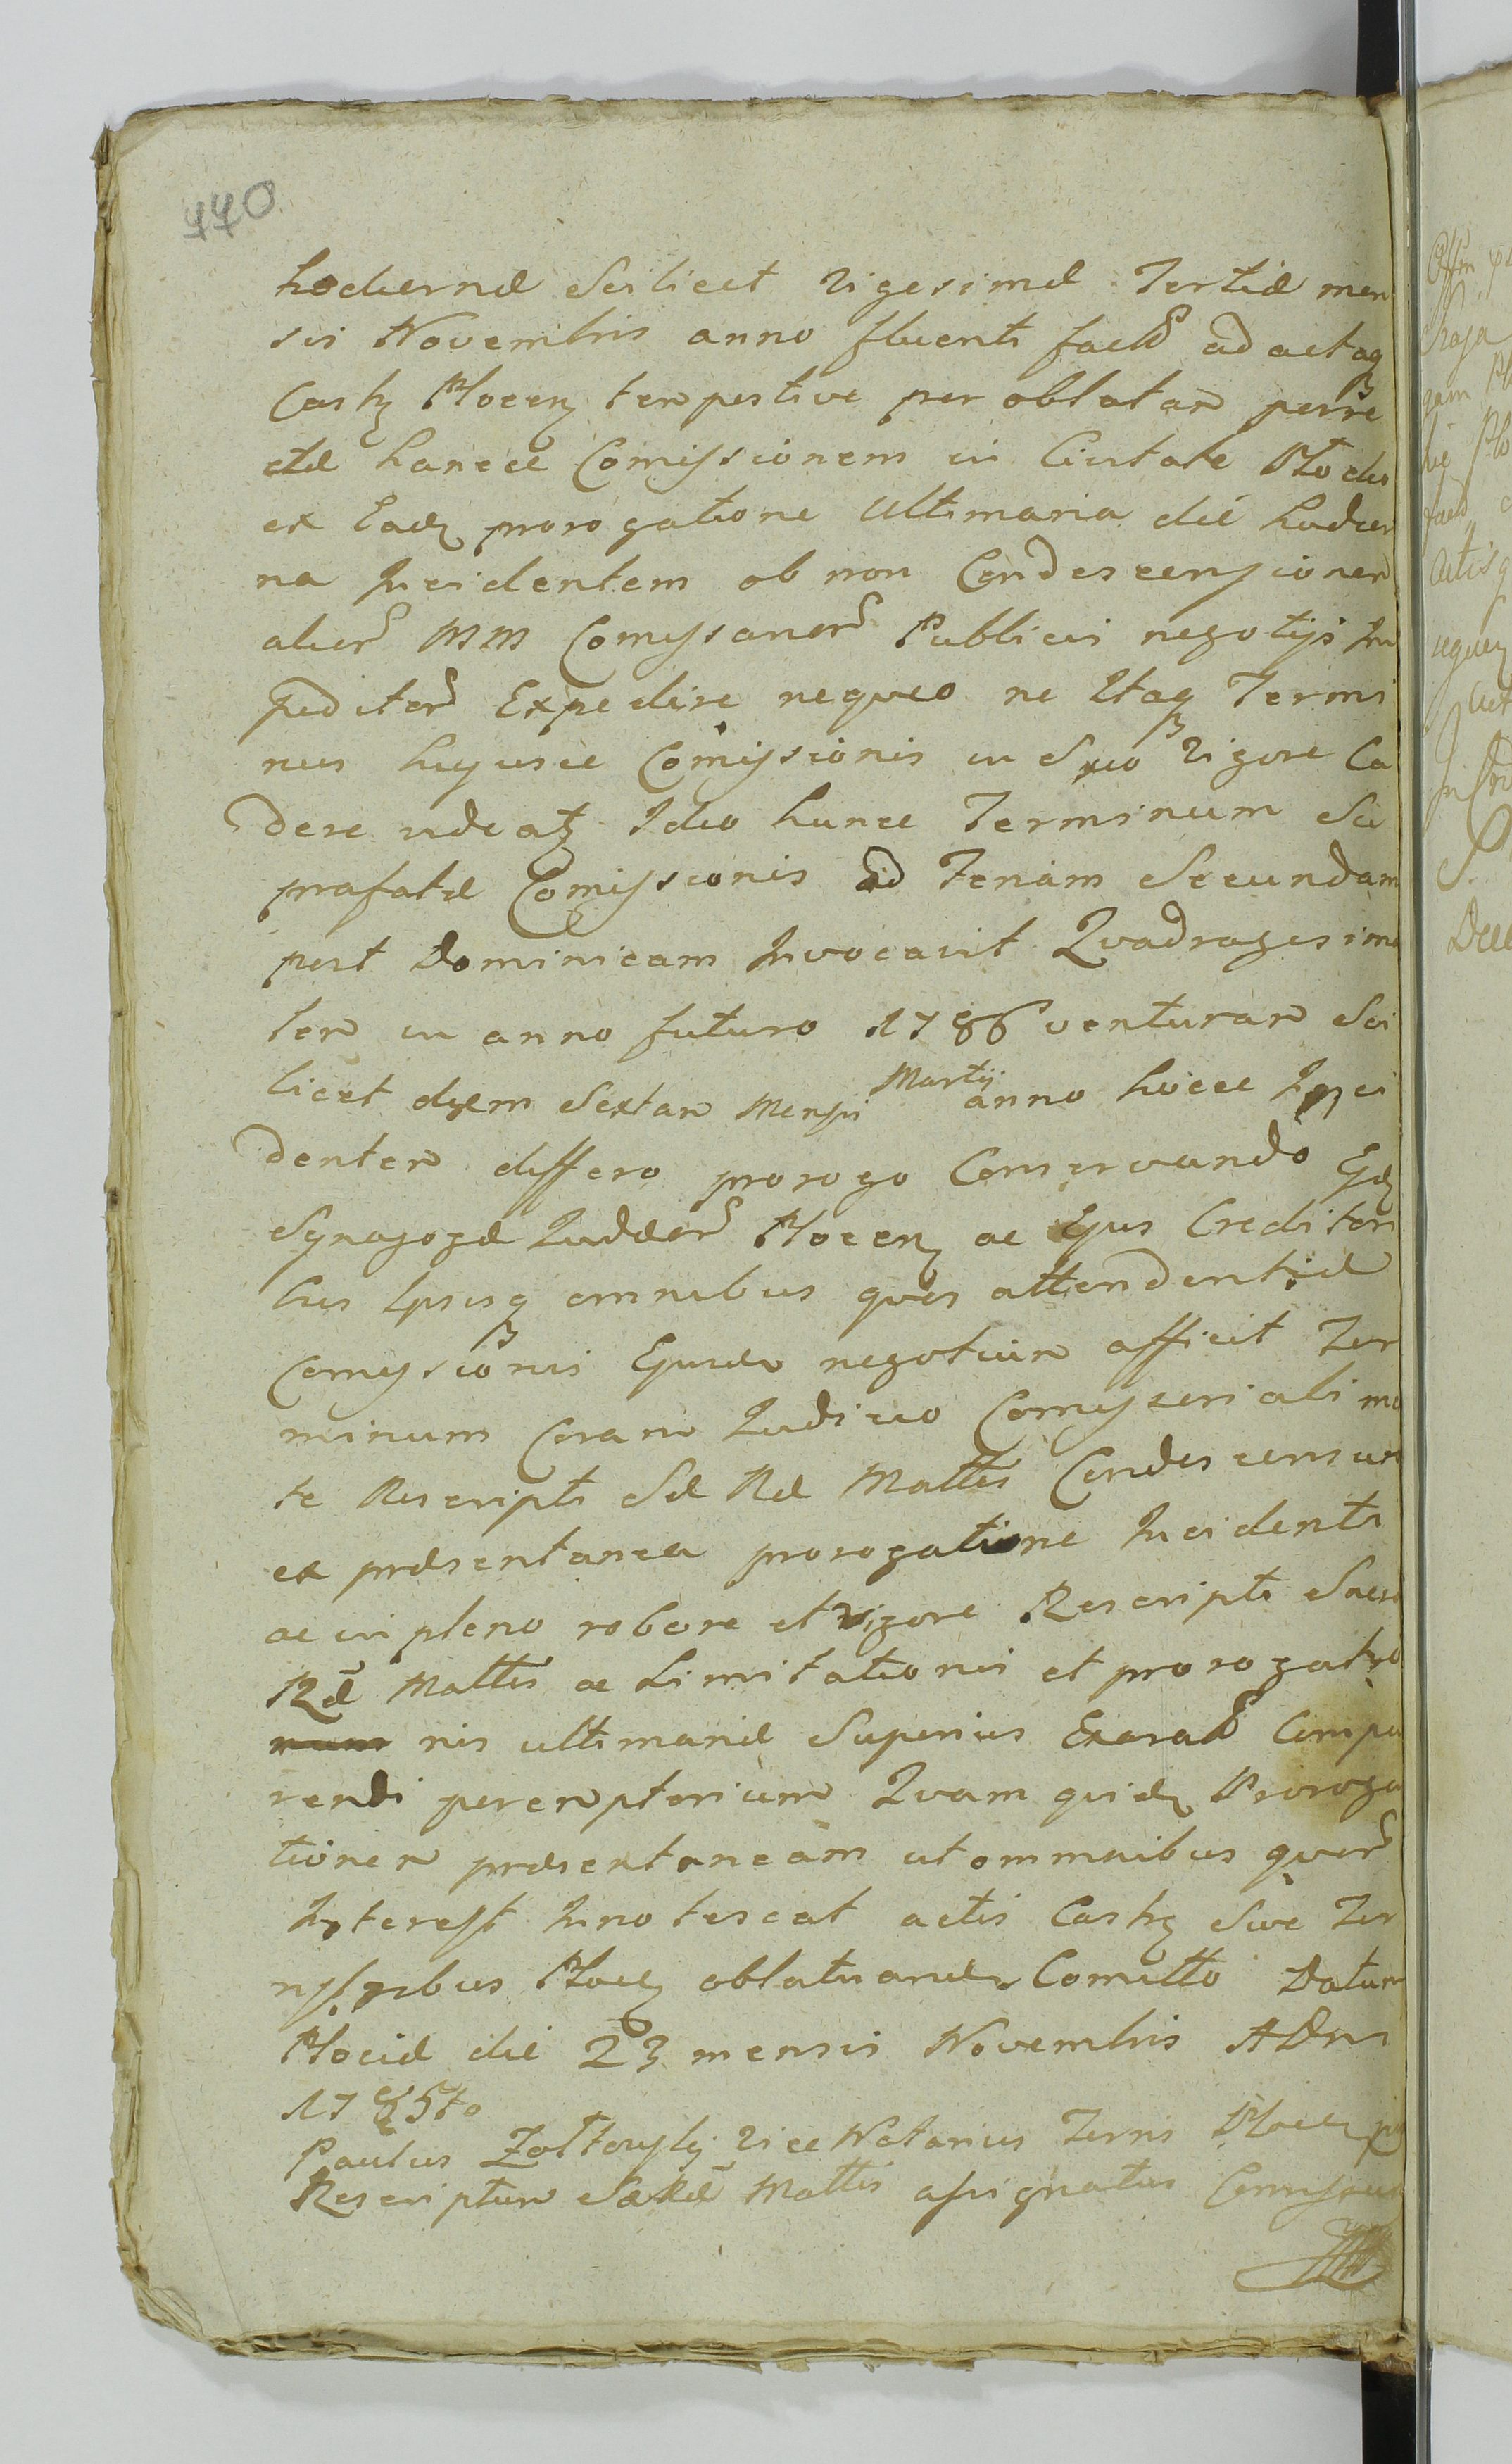 440.
hodiernæ Scilicet Vigesimæ Tertiæ men
sis Novembris anno fluenti factā ad actaq
Castrz Plocenz tempestive per oblatam perre
ctæ hancce Comissionem in Civitate Plocko
ex Eadz prorogatione Ultimaria die hodier
na Incidentem ob non Condescensionem
alior MM Comyssarior Publicis negotijs Im
peditor Expedire nequeo ne Itaq Termi
nus hujusce Comissionis in Suo Vigore Ca
dere videatz Ideo hunce Terminum Su
prafatæ Comissionis ad Feriam Secundam
post Dominicam Invocavit Quadragesima
lem in anno futuro 1786 venturam Sci
licet diem Sextam Mensis Martij anno hocce Inci
dentem differo prorogo Conservando Ejdz
Synagogæ Judæor Plocenz ac Ejus Creditori
bus Ipsisq omnibus quos attendentiæ
Comyssionis Ejusdem negotium afficit Ter
minum Coram Judicio Comysseriali mo
te Rescripti Sæ Ræ Mattis Condescensur
ex præsentanea prorogatione Incidenti
ac in pleno robore et vigore Rescripti Sacræ
Ræ Mattis ac Limitationis et prorogatio
nis ultimariæ Superius Exarat Compa
rendi peremptorium Quam quidz Proroga
tionem præsentaneam ut ommnibus quor
Interest Innotescat actis Castrz Sive Ter
rystribus Plocz oblatuandam Comitto Datum
Plociæ die 23 mensis Novembris ADni
1785to
Paulus Zołtowskj ViceNotarius Terris Plocenz per
Rescriptum SæRæ Mattis assignatus Comyssarius